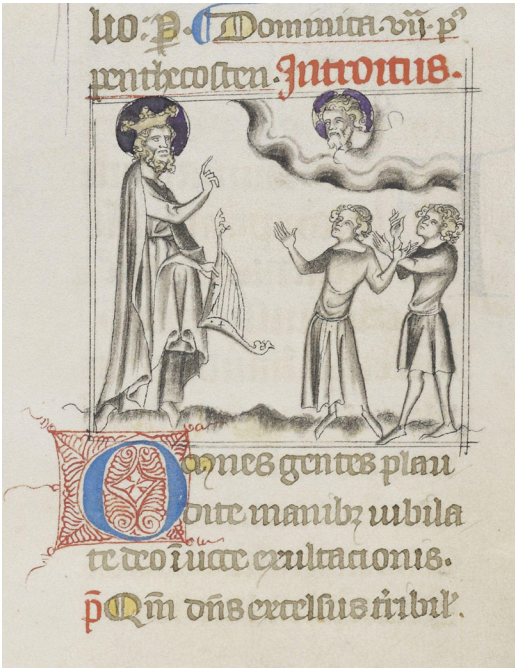 lio. p̄. Dominica. vij. p᾽
penthecosten. Introitus.
Omnes gentes plau
dite manibꝫ iubila
te deo ī uoce exultacionis.
p̄ Qm̄ dn̄s excelsus t̄ribil᾽.